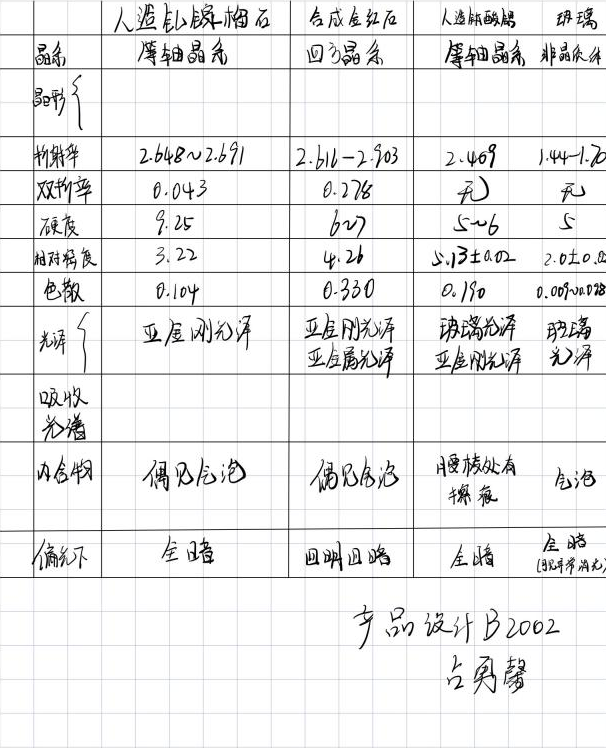 人造钆镓榴石 合成金红石 人造钛酸锶 玻璃
晶系 等轴晶系 四方晶系 等轴晶系 非晶质体
晶形
折射率 2.648~2.691 2.616-2.903 2.409 1.44-1.70
双折率 0.043 0.278 无 无
硬度 9.25 6~7 5~6 5
相对密度 3.22 4.26 5.13±0.02 2.0±0.0
色散 0.104 0.330 0.190 0.009~0.098
光泽 亚金刚光泽 亚金刚光泽 玻璃光泽 玻璃
亚金属光泽 亚金刚光泽 光泽
吸收
光谱
内含物 偶见气泡 偶见气泡 腰棱处有 气泡
擦痕
偏光下 全暗 四明四暗 全暗 全暗
(现异常消光)
产品设计B2002
占勇馨